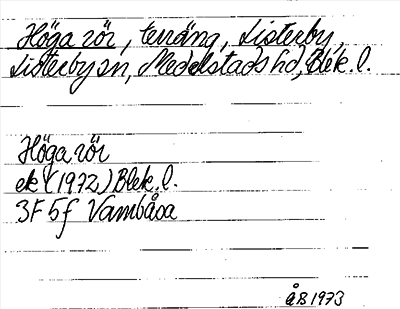 Höga rör, terräng, Listerby,
Listerby sn, Medelstads hd, Blek. l.
Höga rör
ek (1972) Blek. l.
3F 5f Vambåsa
ÅB 1973